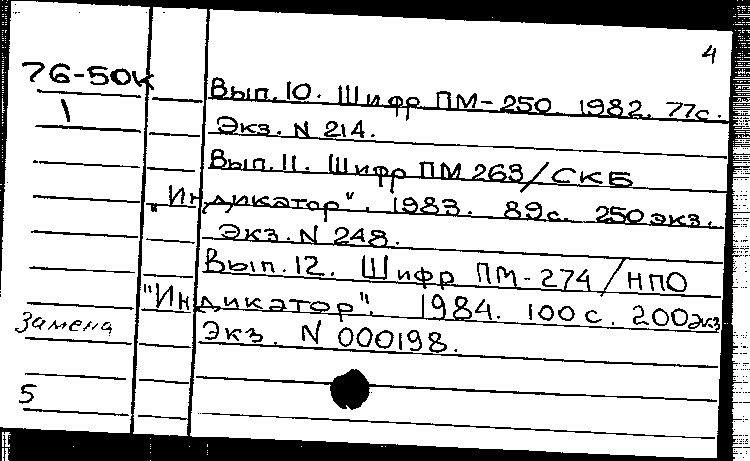 4
76-50К
1
Вып. 10. Шифр ПМ-250. 1982. 77с.
Экз. N 214.
Вып. 11. Шифр ПМ 263/СКБ
„Индикатор". 1983. 89с. 250 экз.
Экз. N 248.
Вып. 12. Шифр ПМ-274/НПО
"Индикатор". 1984. 100 с. 200экз
Экз. N 000198.
Замена
5